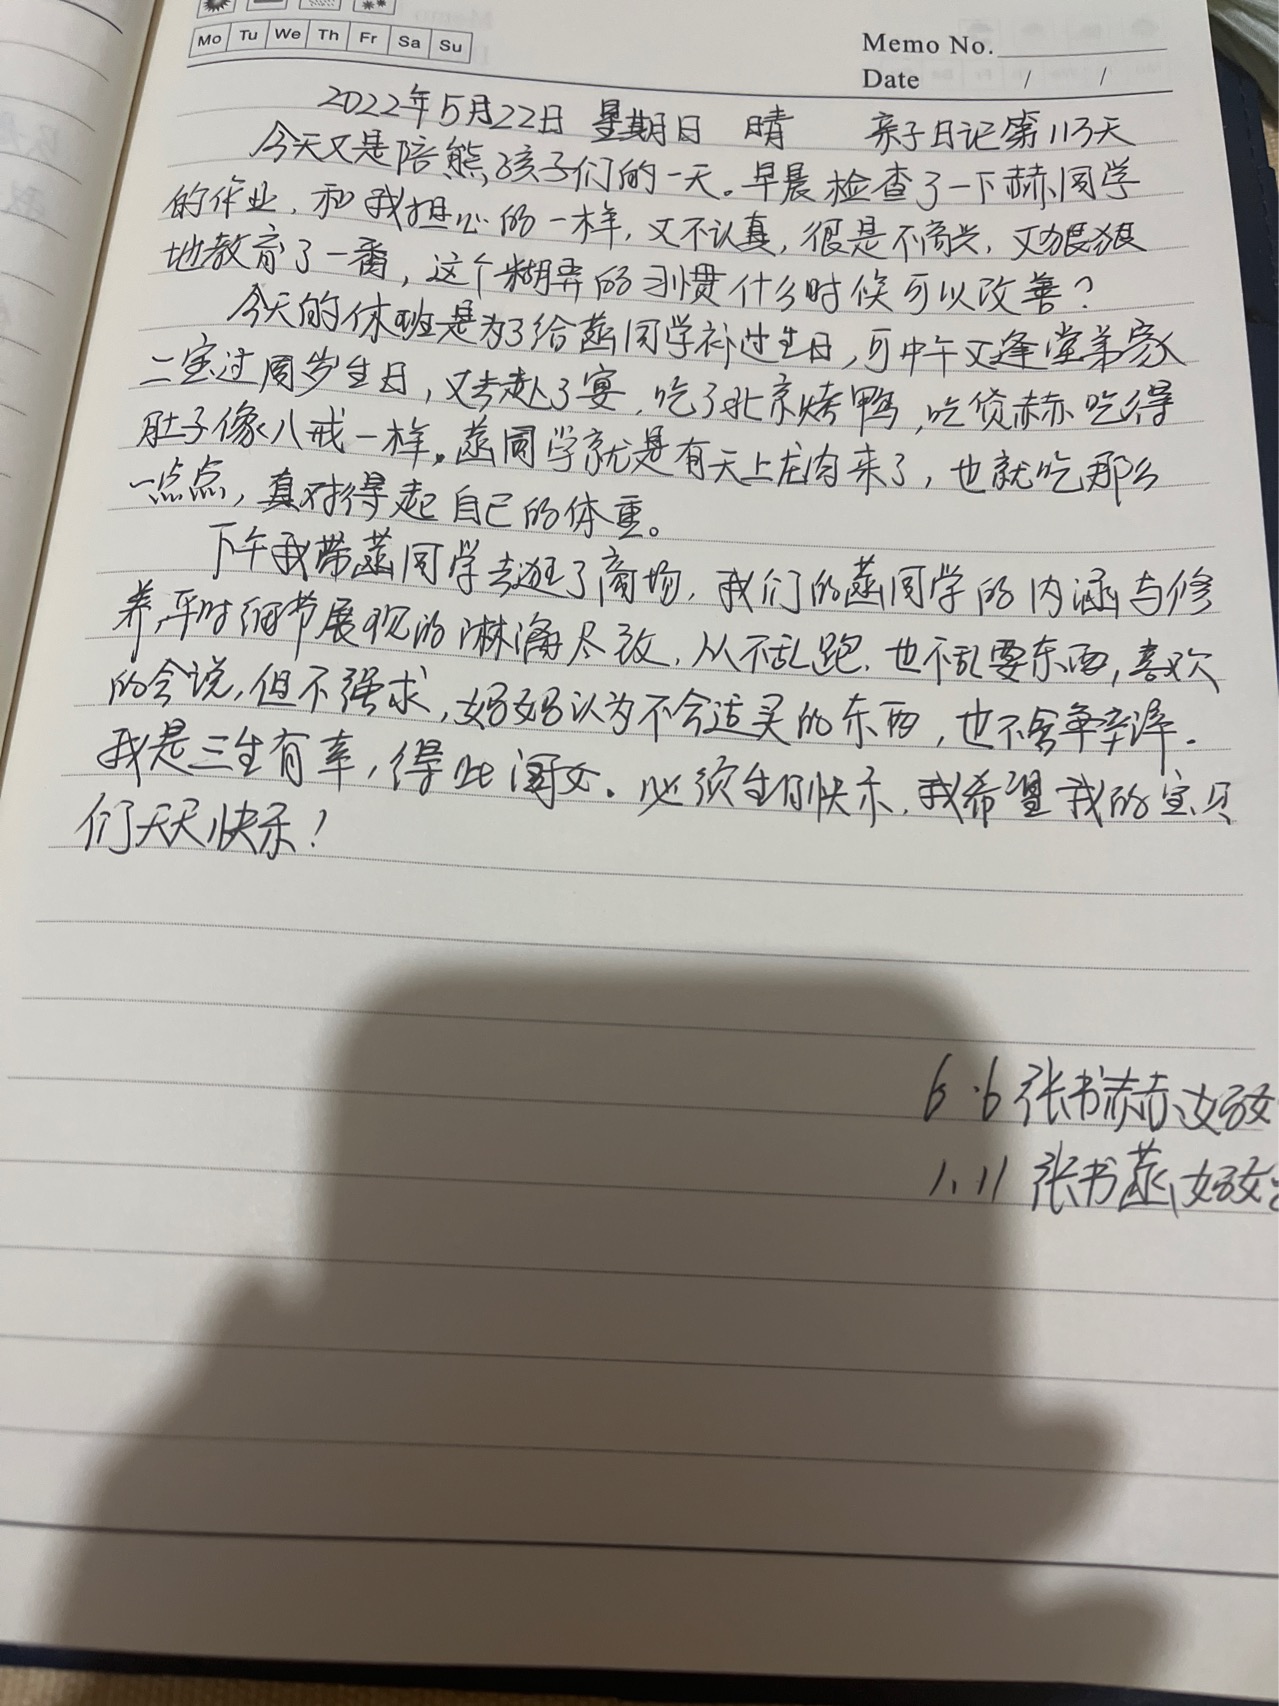 Mo Tu We Th Fr Sa Su
Memo No.
Date / /
2022年5月22日 星期日 晴 亲子日记第113天
今天又是陪熊孩子们的一天。早晨检查了一下赫同学
的作业,和我担心的一样,又不认真,很是不高兴,又狠狠
地教育了一番,这个糊弄的习惯什么时候可以改善?
今天的休班是为了给菡同学补过生日,可中午又逢堂弟家
二宝过周岁生日,又去赴了宴,吃了北京烤鸭,吃货赫吃得
肚子像八戒一样。菡同学就是有天上龙肉来了,也就吃那么
一点点,真对得起自己的体重。
下午我带菡同学去逛了商场,我们的菡同学的内涵与修
养,平时细节展现的淋漓尽致,从不乱跑,也不乱要东西,喜欢
的会说,但不强求,妈妈认为不合适买的东西,也不会争辛泽.
我是三生有幸,得此闺女.必须生日快乐,我希望我的宝贝
们天天快乐!
6·6张书赫妈妈
1.11 张书菡妈妈